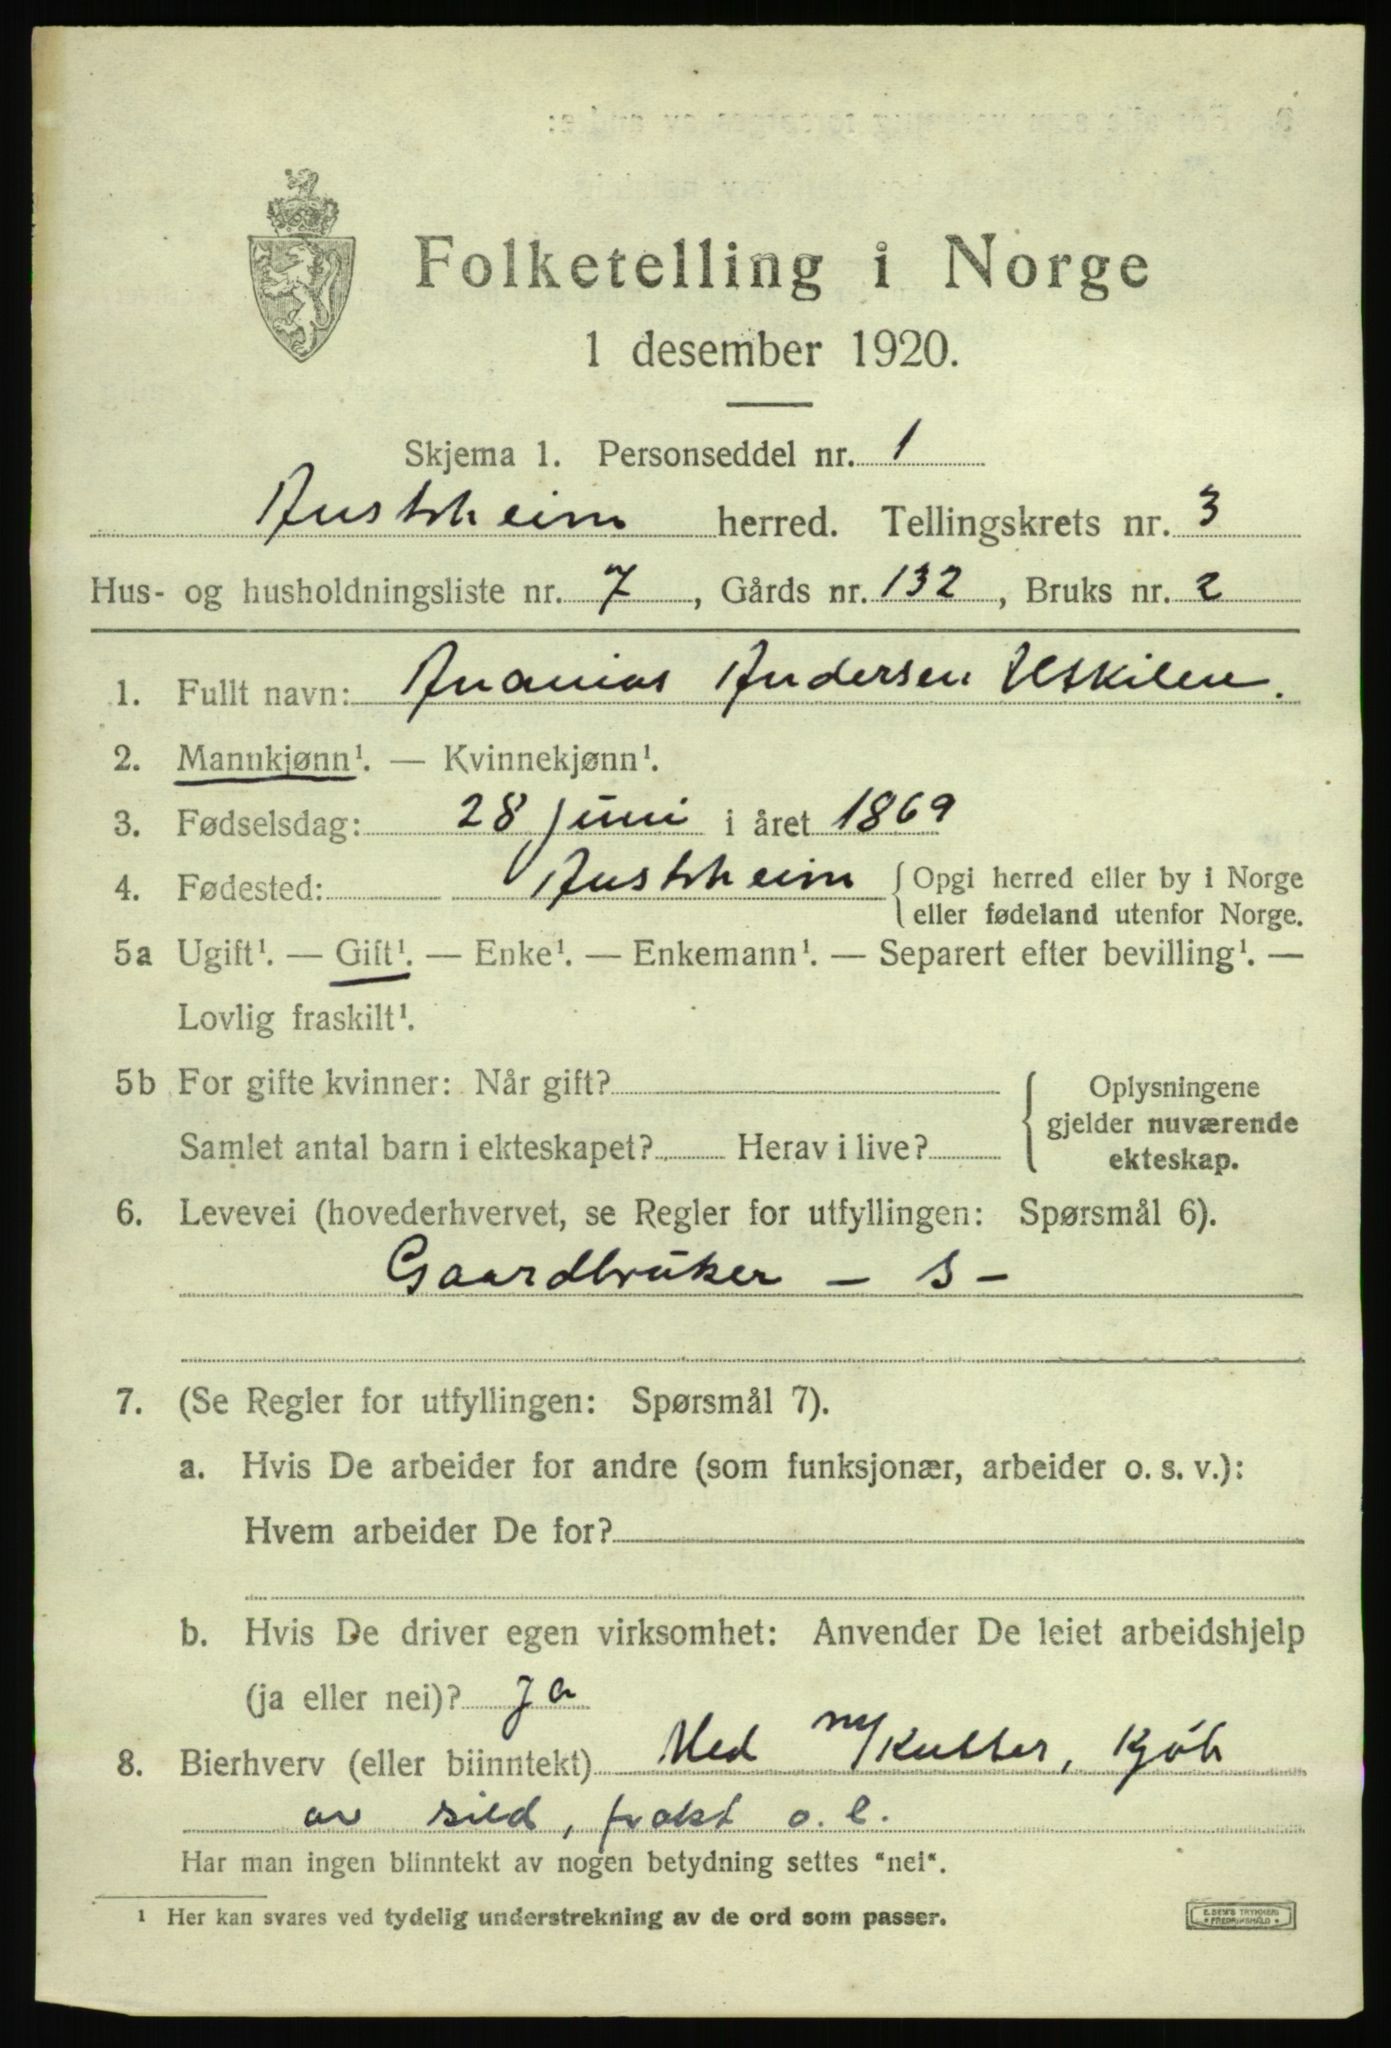 Folketelling i Norge
1 desember 1920.
Skjema 1. Personseddel nr. 1
Austrheim herred. Tellingskrets nr. 3
Hus- og husholdningsliste nr. 7, Gårds nr. 132, Bruks nr. 2
1. Fullt navn: Ananias Andersen Utkilen.
2. Mannkjønn¹. — Kvinnekjønn¹.
3. Fødselsdag: 28 juni i året 1869
4. Fødested: Austrheim { Opgi herred eller by i Norge
eller fødeland utenfor Norge.
5a Ugift¹. — Gift¹. — Enke¹. — Enkemann¹. — Separert efter bevilling¹. —
Lovlig fraskilt¹.
5b For gifte kvinner: Når gift? { Oplysningene
gjelder nuværende
Samlet antal barn i ekteskapet? Herav i live?
ekteskap.
6. Levevei (hovederhvervet, se Regler for utfyllingen: Spørsmål 6).
Gaardbruker – s –
7. (Se Regler for utfyllingen: Spørsmål 7).
a. Hvis De arbeider for andre (som funksjonær, arbeider o. s. v.):
Hvem arbeider De for?
b. Hvis De driver egen virksomhet: Anvender De leiet arbeidshjelp
(ja eller nei)? ja
8. Bierhverv (eller biinntekt) Med m/Kutter, kjöb
av sild, frakt o. l.
Har man ingen biinntekt av nogen betydning settes "nei".
¹ Her kan svares ved tydelig understrekning av de ord som passer.
E. SEM'S TRYKKERI
FREDRIKSHALD